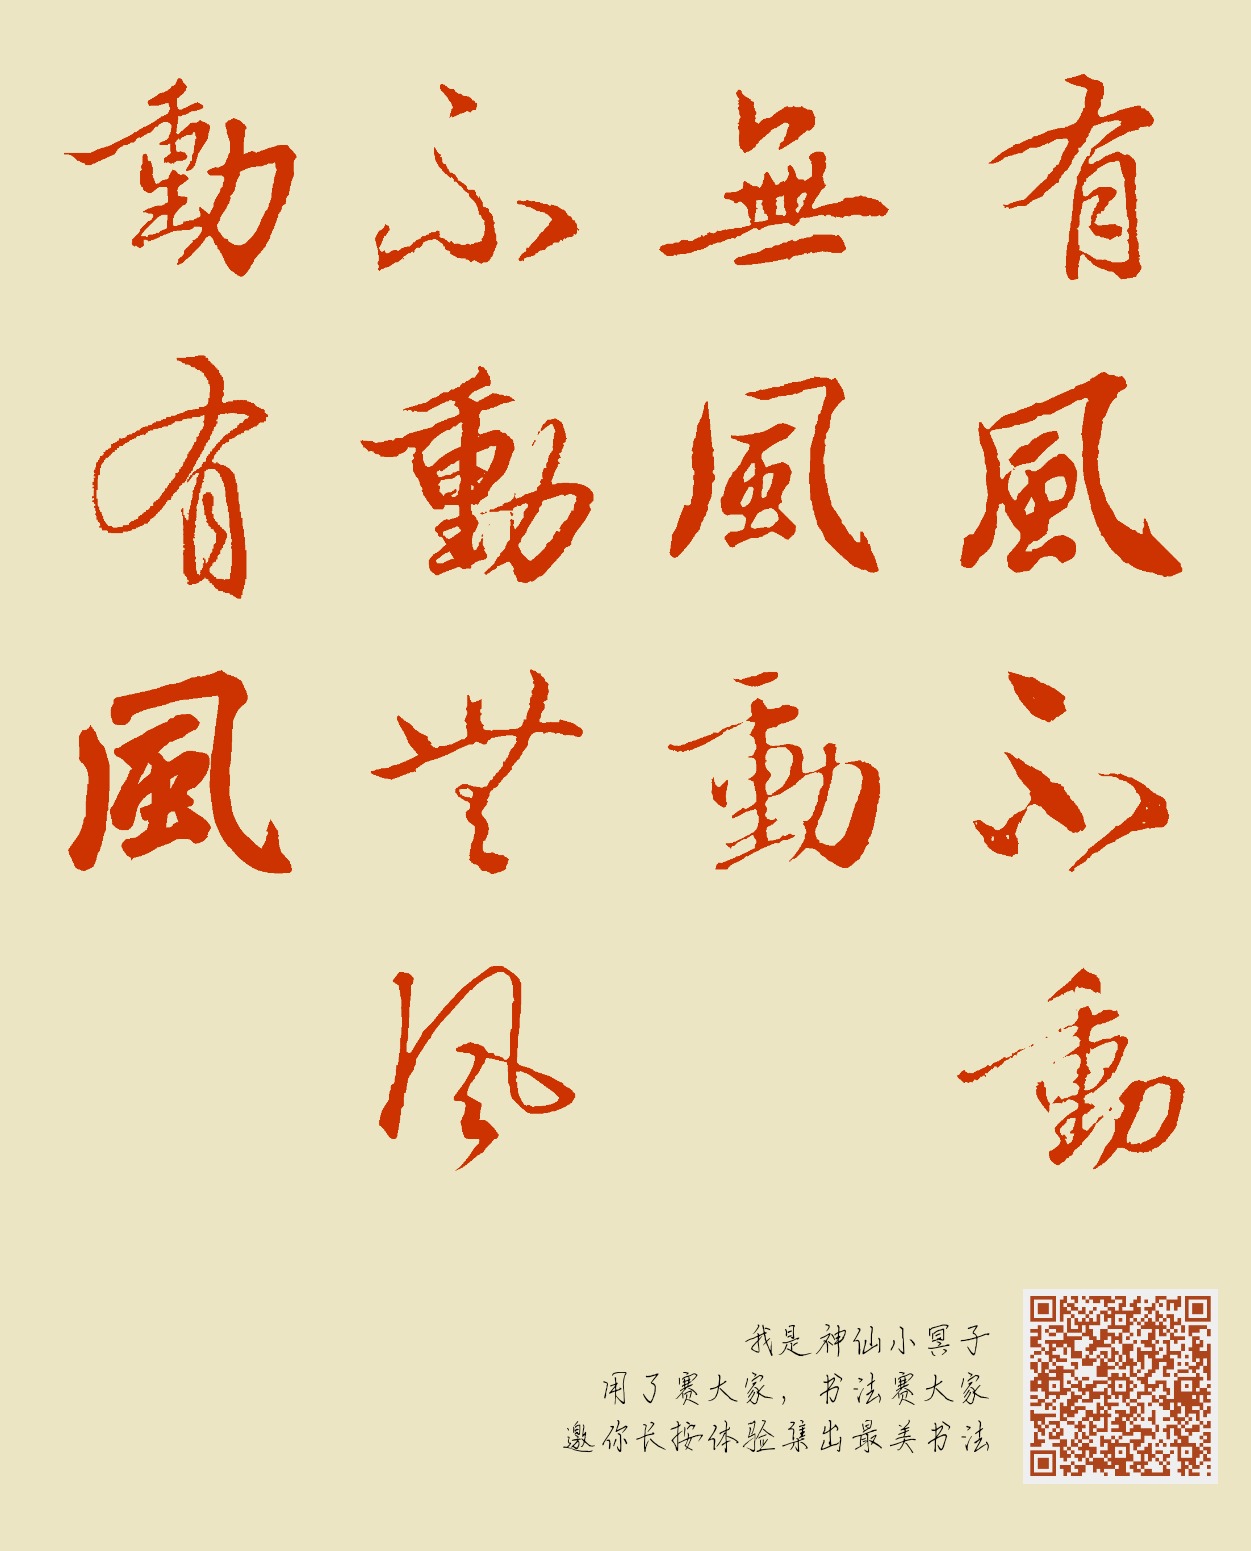 有風不動
無風動
不動無風
動有風
我是神仙小冥子
用了赛大家，书法赛大家
邀你长按体验集出最美书法